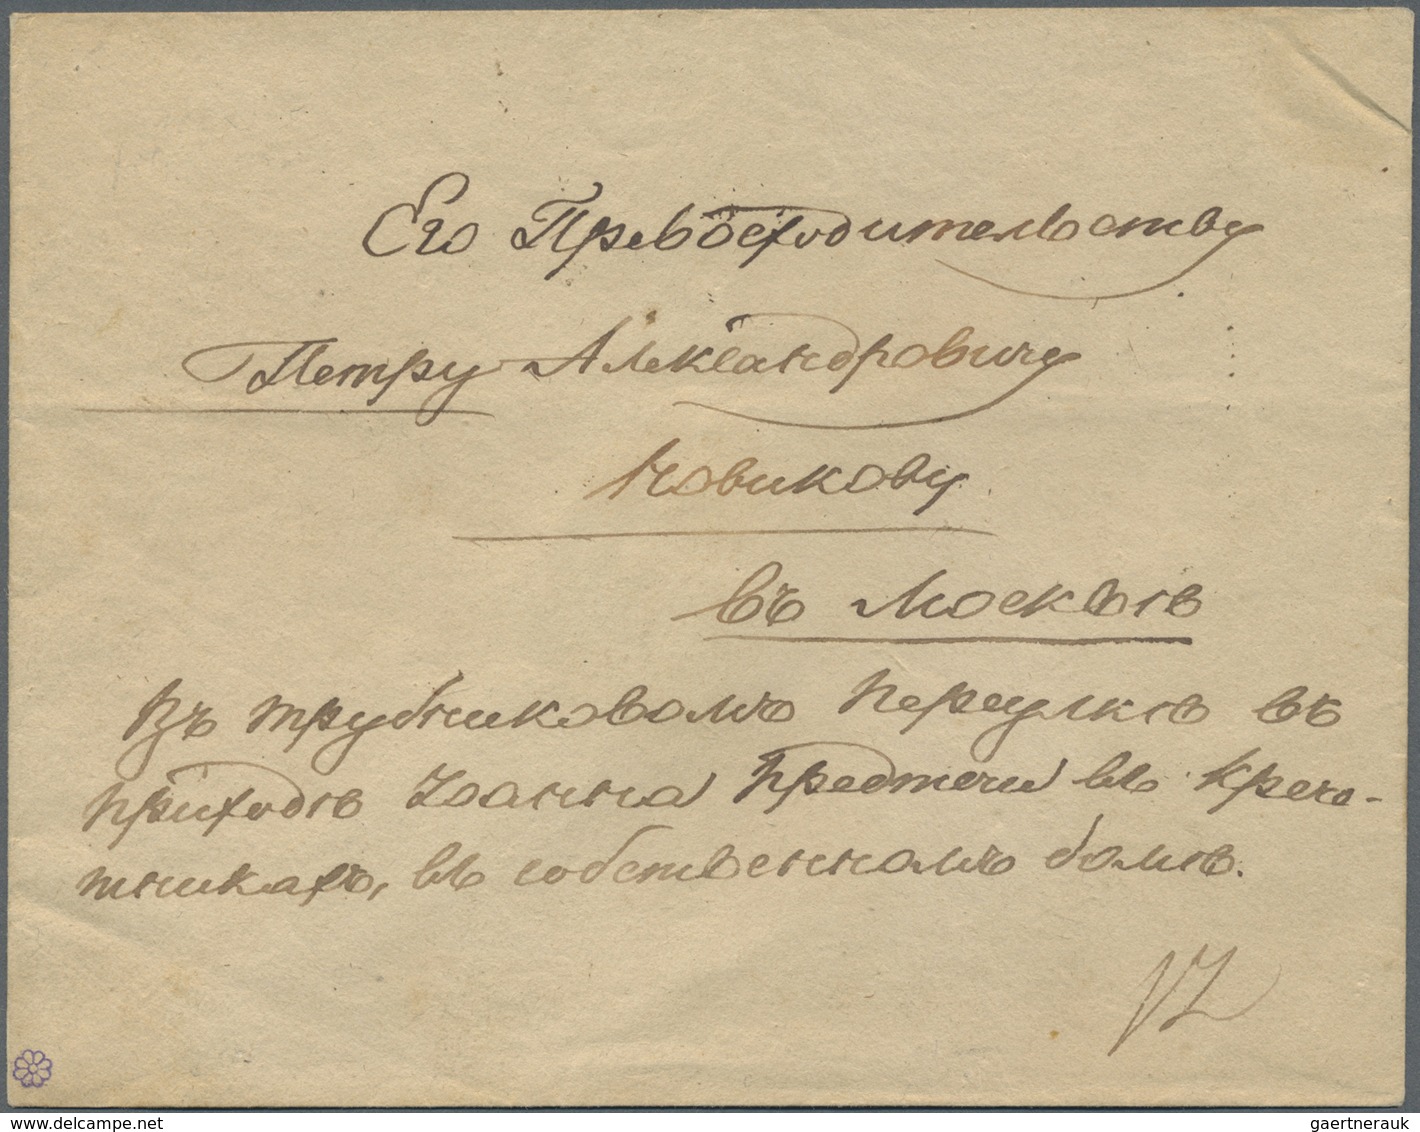 Его Превосходительству
Петру Александровичу
Новикову
въ Москвѣ
Въ трубниковомъ переулкѣ въ
приходѣ Іоанна Предтечи въ Кречо-
тникахъ, въ собственномъ домѣ.
gaertnerauk